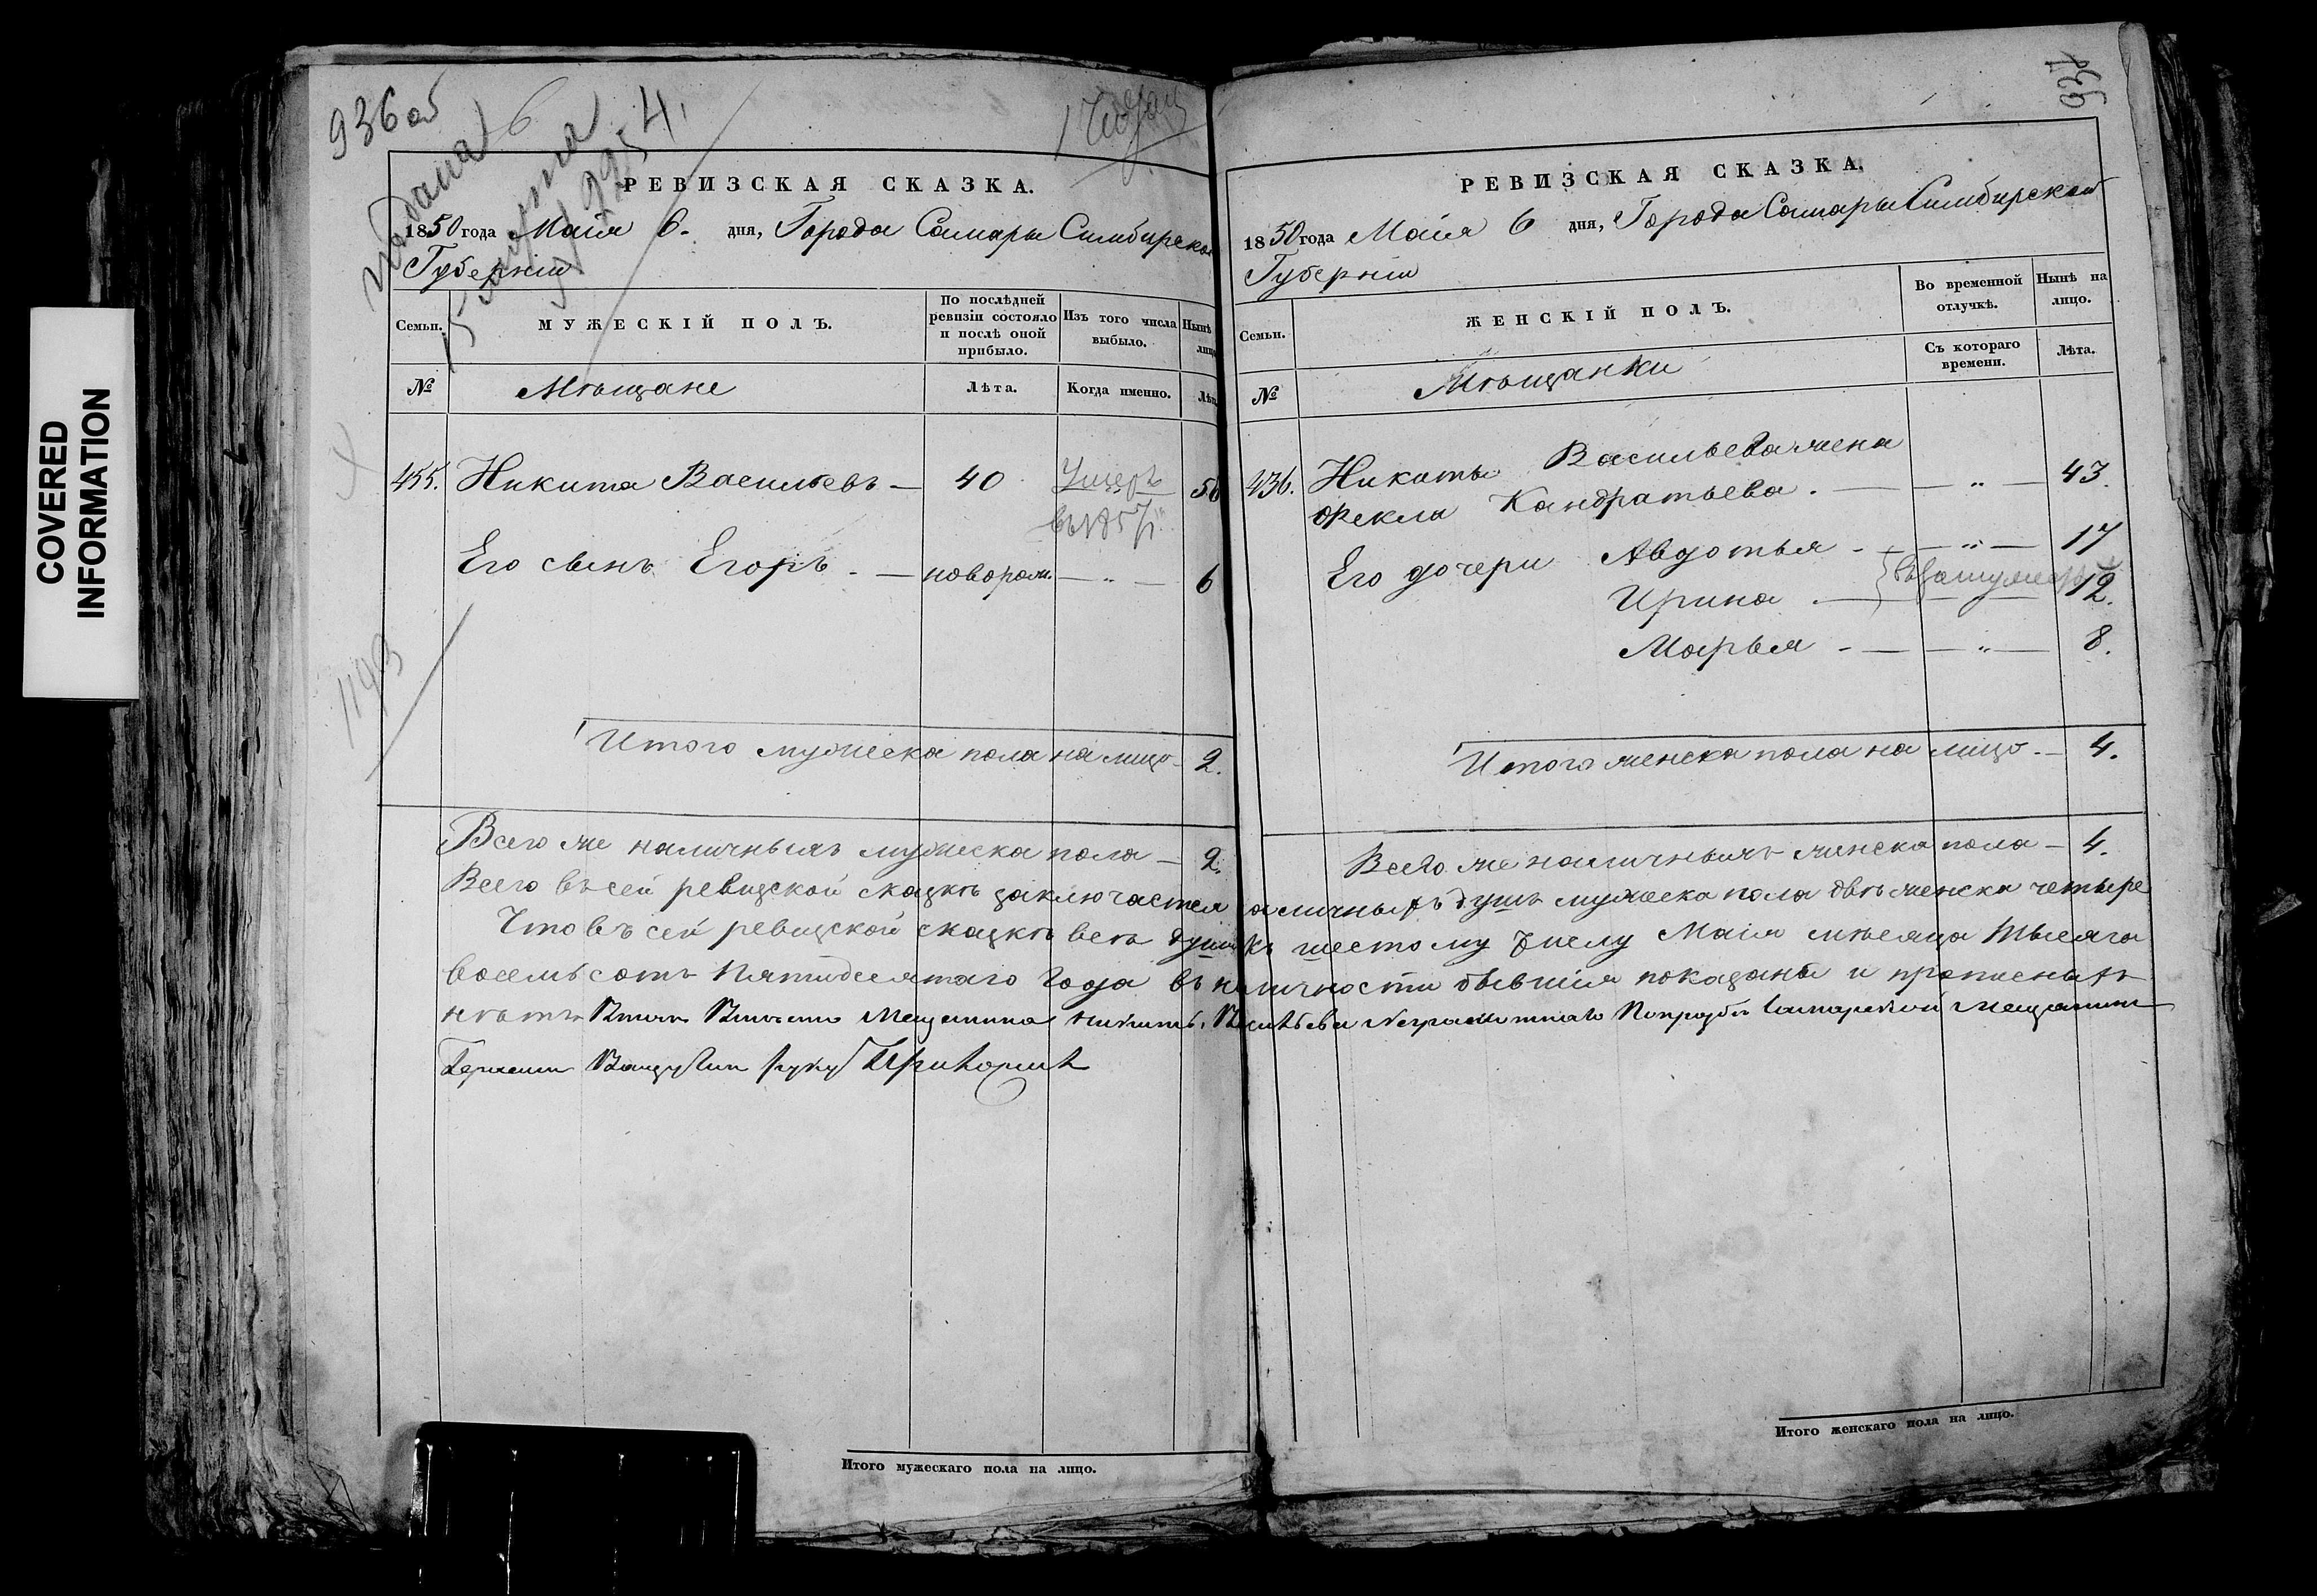 COVERED
INFORMATION
936 об
Подана 6
4.
РЕВИЗСКАЯ СКАЗКА.
1850 года Маія 6. дня, Города Самары Симбирской
Губерніи
Семьи.
МУЖЕСКІЙ ПОЛЪ.
По послѣдней
ревизіи состояло
и послѣ оной
прибыло.
Изъ того числа
выбыло.
Нынѣ
лицо
№
Мѣщане
Лѣта.
Когда именно.
Лѣта
455. Никита Васильевъ — 40 Умеръ 50
въ 1857 г.
Его сынъ Егоръ — новорож. — „ — 6
1193
Итого мужеска пола на лицо — 2.
Всего же наличныхъ мужеска пола — 2.
Итого мужескаго пола на лицо.
937
РЕВИЗСКАЯ СКАЗКА.
1850 года Маія 6 дня, Города Самары Симбирской
Губерніи
Семьи.
ЖЕНСКІЙ ПОЛЪ.
Во временной
отлучкѣ.
Нынѣ на
лицо.
№
Мѣщанки
Съ котораго
времени.
Лѣта.
436. Никиты Васильева жена
Фекла Кандратьева. — „ — 43.
Его дочери Авдотья — „ — 17
Ирина — 12.
Марья — „ — 8.
Итого женска пола на лицо. — 4.
Всего же наличныхъ женска пола — 4.
Всего въ сей ревизской сказкѣ заключается наличныхъ душъ мужеска пола двѣ женска четыре
Что въ сей ревизской сказкѣ всѣ души къ шестому числу Маія мѣсяца тысяча
восемьсотъ пятидесятаго года въ наличности бывшія показаны и прописныхъ
нѣтъ Мещанина Никиты Васильева неграмотнаго Попрозбѣ Самарской мещанин
руку Приложил
Итого женскаго пола на лицо.